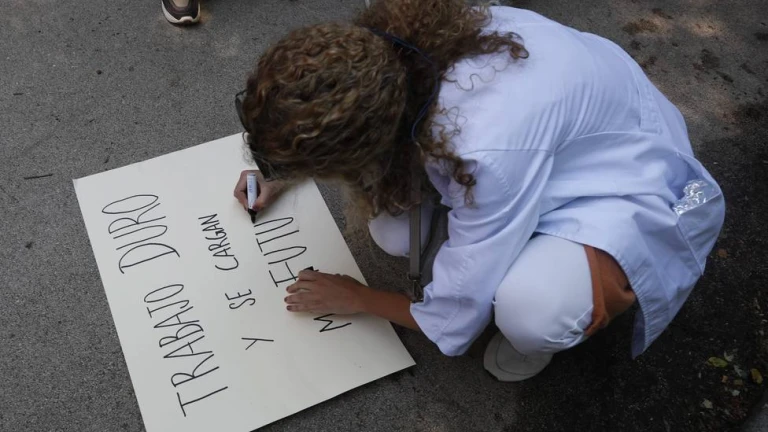 TRABAJO DURO
Y SE CARGAN
FUTU